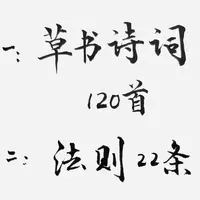 一：草书诗词
120首
二：法则22条